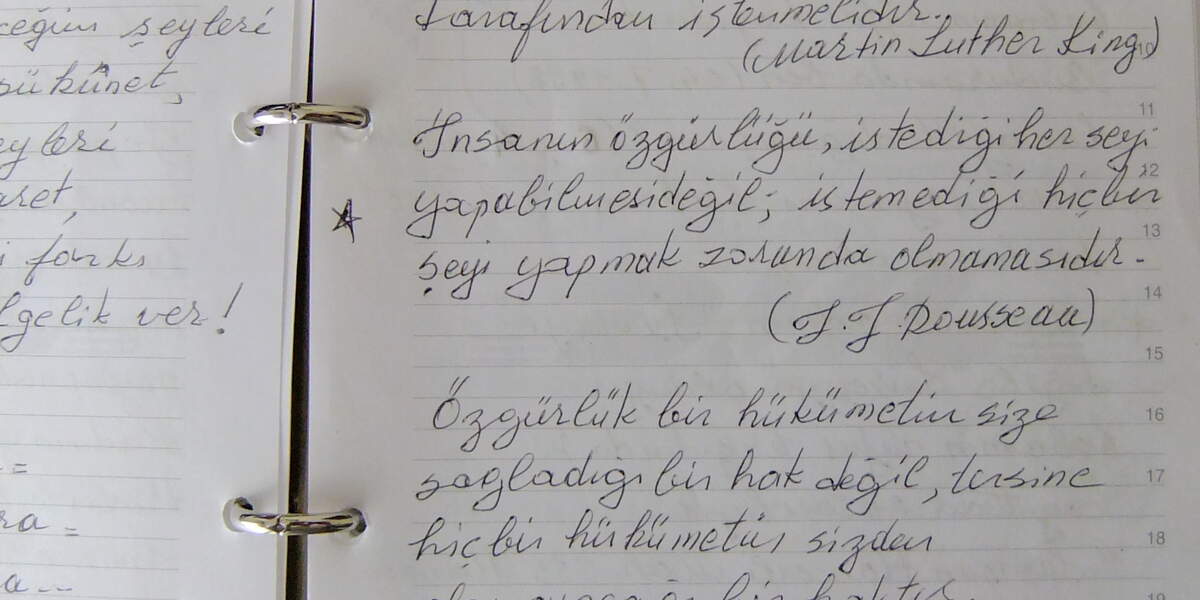 şeyleri
sükûnet,
şeyleri
farkı
ver!
tarafından istenmelidir.
(Martin Luther King)
10
11
İnsanın özgürlüğü, istediği her şeyi
12
yapabilmesideğil; istemediği hiçbir
13
şeyi yapmak zorunda olmamasıdır.
14
(J.J. Rousseau)
15
Özgürlük bir hükümetin size
16
sağladığı bir hak değil, tersine
17
hiçbir hükümetin sizden
18
bir haktır.
19